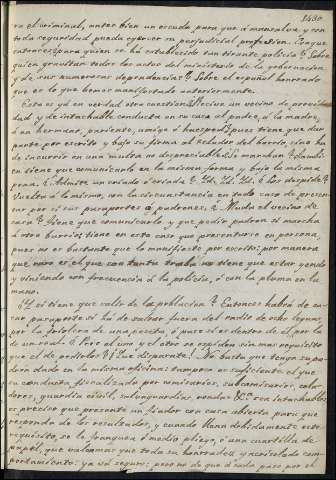 1430
ra el criminal, antes bien un escudo para que á mansalva y con
toda seguridad pueda ejercer su perjudicial profesion. ¿Con que
entonces para quien se ha establecido tan tirante policía? ¿Sobre
quien gravitan todos los actos del ministerio de la gobernacion,
y de sus numerosas dependencias? Sobre el español honrado
que es lo que hemos manifestado anteriormente.
Esta es ya en verdad otra cuestion. ¿Recive un vecino de providad
y de intachable conducta en su casa al padre, á la madre,
á un hermano, pariente, amigo ó huesped? pues tiene que dar
parte por escrito y bajo su firma al celador del barrio, sino ha
de incurrir en una multa no despreciable. ¿Se marchan? tambien
tiene que comunicarlo en la misma forma y bajo la misma
pena. ¿Admite un criado ó criada? Id. Id. Id. ¿los despide?
vuelta á lo mismo, con la circunstancia en todo caso de presentar
por sí sus pasaportes ó padrones. ¿Muda el vecino de
casa? tiene que comunicarlo y que pedir padron si marcha
á otro barrio; tiene en este caso que presentarse en persona,
pues no es bastante que lo manifieste por escrito: por manera
que raro es el que con tanta traba no tiene que estar yendo
y viniendo con frecuencia á la policía, ó con la pluma en la
mano.
¿Y si tiene que salir de la poblacion? Entonces habrá de sacar
pasaporte si ha de salvar fuera del radio de ocho leguas,
por la friolera de una peseta ó pase si es dentro de él por la
de un real. ¿Pero el uno y el otro se espiden sin mas requisito
que el de pedirlos? ¡Que disparate! No basta que tenga su padron
dado en la misma oficina: tampoco es suficiente el que
su conducta fiscalizada por comisarios, subcomisarios, celadores,
guardia civil, salvaguardias, rondas &c. sea intachable:
es preciso que presente un fiador con casa abierta para que
responda de los resultados, y cuando llena debidamente este
requisito, se le franquea ó medio pliego, ó una cuartilla de
papel, que valíamos que toda su honradez y acrisolado comportamiento:
ya vá seguro; pero no de que á cada paso por el